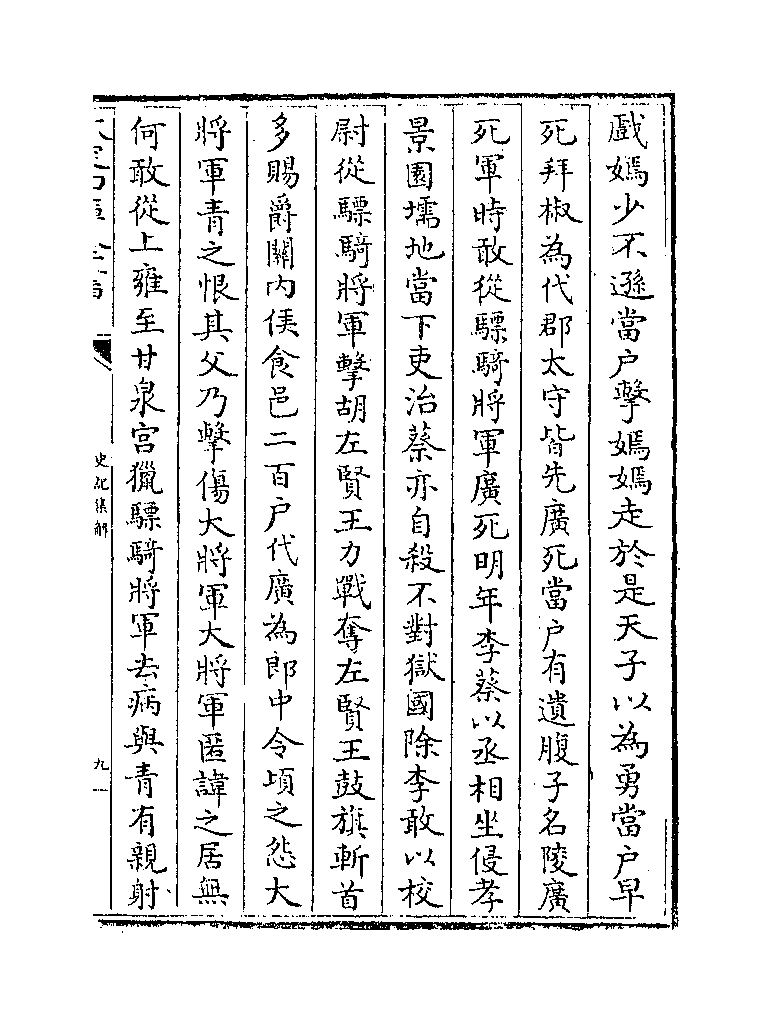 戲嫣少不遜當户擊嫣嫣走於是天子以為勇當户早
死拜椒為代郡太守皆先廣死當户有遺腹子名陵廣
死軍時敢從驃騎將軍廣死明年李蔡以丞相坐侵孝
景園壖地當下吏治蔡亦自殺不對獄國除李敢以校
尉從驃騎將軍擊胡左賢王力戰奪左賢王鼓旗斬首
多賜爵關内侯食邑二百户代廣為郎中令頃之怨大
將軍青之恨其父乃擊傷大將軍大將軍匿諱之居無
何敢從上雍至甘泉宫獵驃騎將軍去病與青有親射
史記集解
九